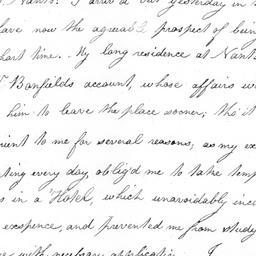 Nants. I arriv'd but yesterday in
have now the agreeable prospect of bein
hort time. My long residence at Nants
Banfields account, whose affairs w
him to leave the place sooner; tho' it
ient to me for several reasons, as my ex
ting every day, oblig'd me to take temp
s in a Hotel, which unavoidably inc
expence, and prevented me from study
with necessary applicatio I